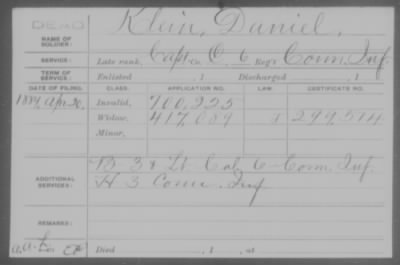 DEMO
Klein, Daniel,
NAME OF SOLDIER:
SERVICE: Late rank, Capt Co. C. 6 Reg't Conn. Inf.
TERM OF SERVICE: Enlisted , 1 Discharged , 1
DATE OF FILING. CLASS. APPLICATION NO. LAW. CERTIFICATE NO.
Invalid, 700,223
Widow, 417,089 299,514
Minor,
ADDITIONAL SERVICES: B 3 & Lt. Col 6 Conn. Inf.
H 3 Conn. Inf
REMARKS:
Died , 1 , at